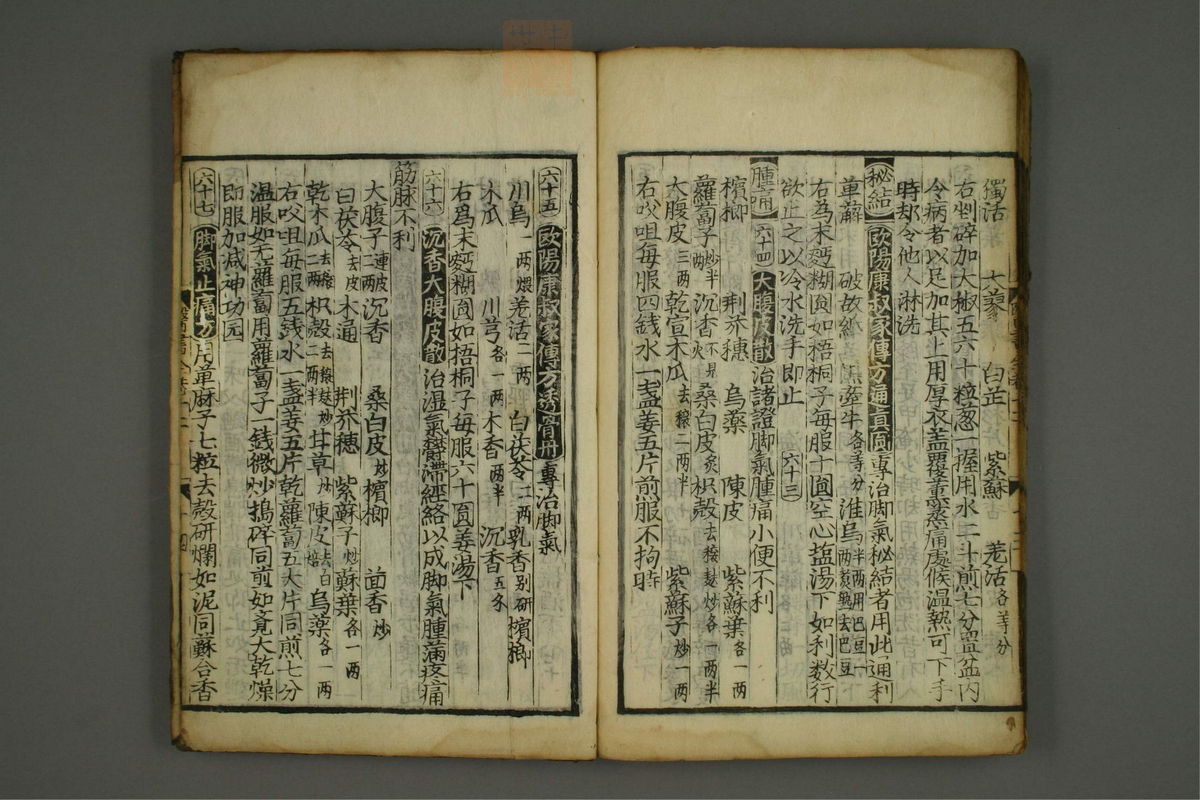 獨活 大蓼 白芷 紫蘇 羗活各等分
右剉碎加大椒五六十粒葱一握用水二斗煎七分盛盆內
令病者以足加其上用厚衣盖覆薰蒸痛處候温熱可下手
時却令他人淋洗
秘結 歐陽康叔家傳方通真圓專治脚氣秘結者用此通利
萆薢 破故紙 黑牽牛各等分 淮烏半两用巴豆一两煮熟去巴豆
右為末麪糊圓如梧桐子每服十圓空心塩湯下如利数行
欲止之以冷水洗手即止 六十三
腫痛 六十四 大腹皮散治諸證脚氣腫痛小便不利
檳榔 荆芥穗 烏藥 陳皮 紫蘇葉各一两
蘿蔔子炒半两 沉香不見火 桑白皮炙 枳殻去穰麩炒各一两半
大腹皮三两 乾宣木瓜去穰二两半 紫蘇子炒一两
右㕮咀每服四錢水一盞姜五片煎服不拘時
六十五 歐陽康叔家傳方透骨丹專治脚氣
川烏一两煨 羗活二两 白茯苓二两 乳香别研 檳榔
木瓜 川芎各一两 木香两半 沉香五錢
右爲末麪糊圓如梧桐子每服六十圓姜湯下
六十六 沉香大腹皮散治湿氣欝滯經絡以成脚氣腫滿疼痛
筋脉不利
大腹子連皮二两 沉香 桑白皮炒 檳榔 茴香炒
白茯苓去皮 木通 荆芥穗 紫蘇子炒 蘇葉各一两
乾木瓜去穰二两 枳殻去穰麸炒二两半 甘草炒 陳皮去白焙 烏藥各一两
右㕮咀每服五錢水一盞姜五片乾蘿蔔五大片同煎七分
温服如无蘿蔔用蘿蔔子一錢微炒搗碎同煎如覔大乾燥
即服加減神功圓
六十七 脚氣止痛方用萆麻子七粒去殻研爛如泥同蘇合香